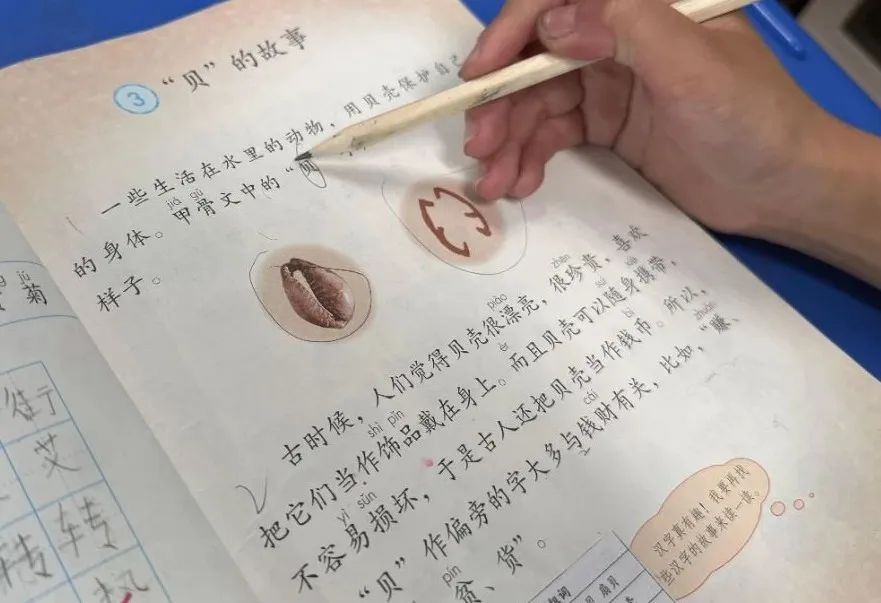 3 "贝"的故事
一些生活在水里的动物，用贝壳保护自己
jiǎ gǔ
的身体。甲骨文中的"贝
样子。
piào zhēn
古时候，人们觉得贝壳很漂亮，很珍贵，喜欢
shì pǐn ér suí xié
把它们当作饰品戴在身上。而且贝壳可以随身携带，
yì sǔn bì
不容易损坏，于是古人还把贝壳当作钱币。所以，
cái zhuàn
"贝"作偏旁的字大多与钱财有关，比如，"赚、
pín
贫、货"。
汉字真有趣！我要再找
些汉字的故事来读一读。
组词
扇贝
jú
菊
艾
转 转